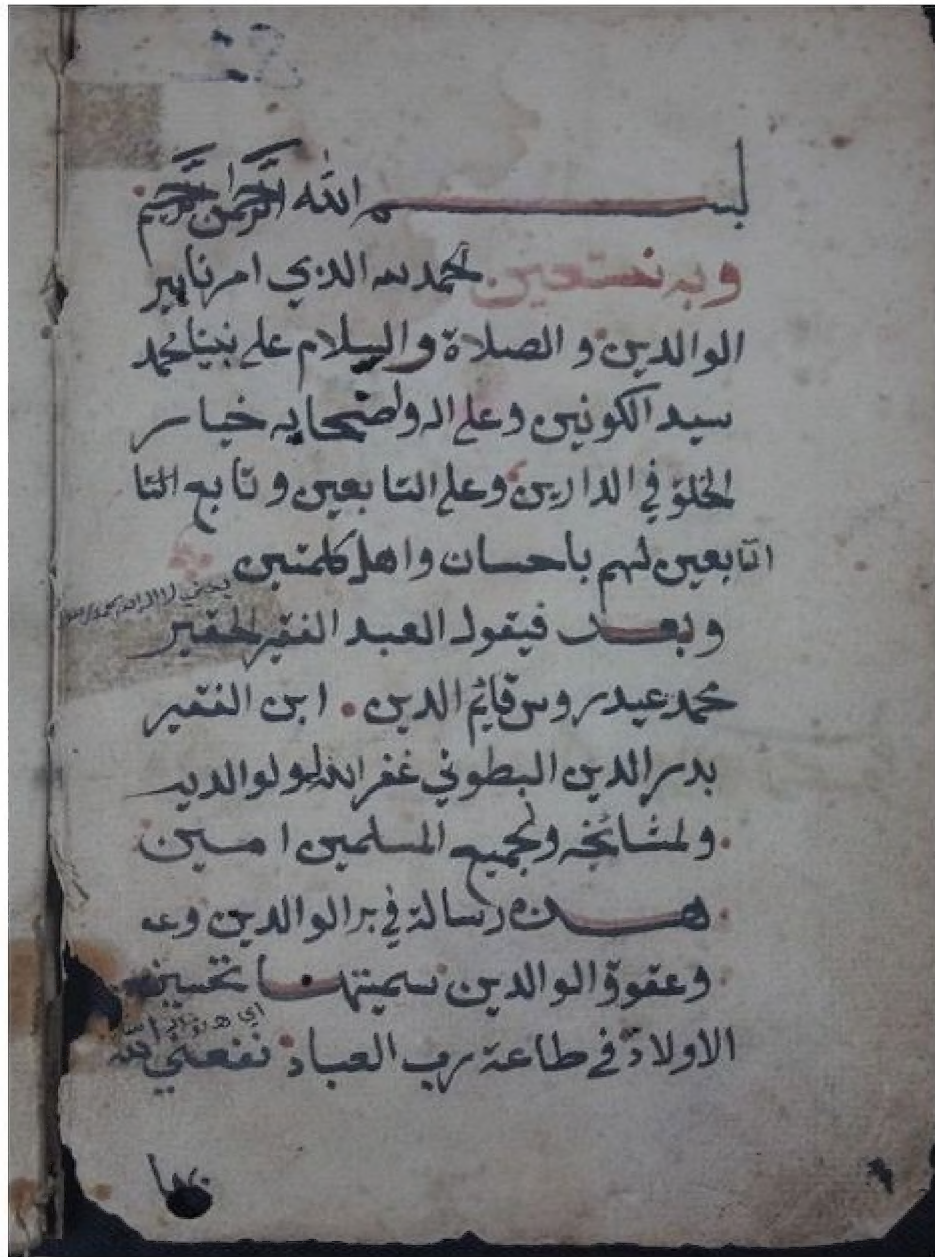 بسم الله الرحمن الرحيم
وبه نستعين الحمد لله الذي امرنا ببر
الوالدين و الصلاة والسلام على نبينا محمد
سيد الكونين وعلى اله واصحابه خيار
الخلق في الدارين وعلى التابعين و تابع التا
التابعين لهم باحسان واهل كلمتين
يعني لا اله الا الله محمد رسول
وبعد فيقول العبد الفقير الحقير
محمد عيدروس قايم الدين . ابن الفقير
بدر الدين البطوني غفر الله له ولوالديه
ولمشائخه ولجميع المسلمين امين
هذه رسالة في بر الوالدين وعـ
وعقوق الوالدين سميتها تحسين
أي هذه
الاولاد في طاعة رب العباد نفعني الله
بها